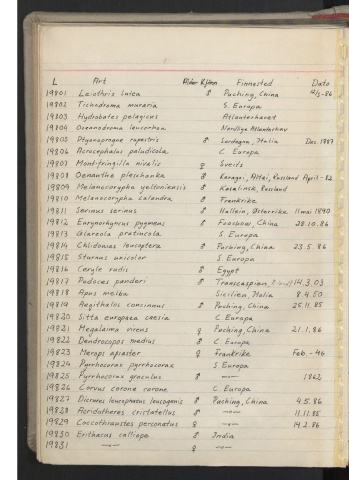 L Art Alder Kjønn Finnested Dato
19801 Leiothrix lutea ♂ Puching, China 12/3-86
19802 Tichodroma muraria S. Europa
19803 Hydrobates pelagicus Atlanterhavet
19804 Oceanodroma leucorhoa Nordlige Atlanterhav
19805 Ptyonoprogne rupestris ♂ Sardegna, Italia Des. 1887
19806 Acrocephalus paludicola C. Europa
19807 Montifringilla nivalis ♀ Sveits
19808 Oenanthe pleschanka ♂ Karagai, Altai, Russland April-82
19809 Melanocorypha yeltoniensis ♂ Russland
19810 Melanocorypha calandra ♂ Frankrike
19811 Serinus serinus ♂ Hallein, Østerrike 11 mai 1890
19812 Eurynorhynchus pygmeus ♂ Foochow, China 28.10.86
19813 Glareola pratincola S. Europa
19814 Chlidonias leucoptera ♂ Puching, China 23.5.86
19815 Sturnus unicolor S. Europa
19816 Ceryle rudis ♂ Egypt
19817 Podoces panderi ♂ Transcaspian 14.3.03
19818 Apus melba Sicilien, Italia 8.4.50
19819 Aegithalos concinnus ♂ Puching, China 25.11.85
19820 Sitta europaea caesia C. Europa
19821 Megalaima virens ♀ Puching, China 21.1.86
19822 Dendrocopos medius ♂ C. Europa
19823 Merops apiaster ♀ Frankrike Feb.-46
19824 Pyrrhocorax pyrrhocorax S. Europa
19825 Pyrrhocorax graculus ♂ —"— 1862
19826 Corvus corone corone C. Europa
19827 Dicrurus leucophaeus leucogenis ♂ Puching, China 4.5.86
19828 Acridotheres cristatellus ♂ —"— 11.11.85
19829 Coccothraustes personatus ♀ —"— 14.2.86
19830 Erithacus calliope ♂ India
19831 —"— ♀ —"—